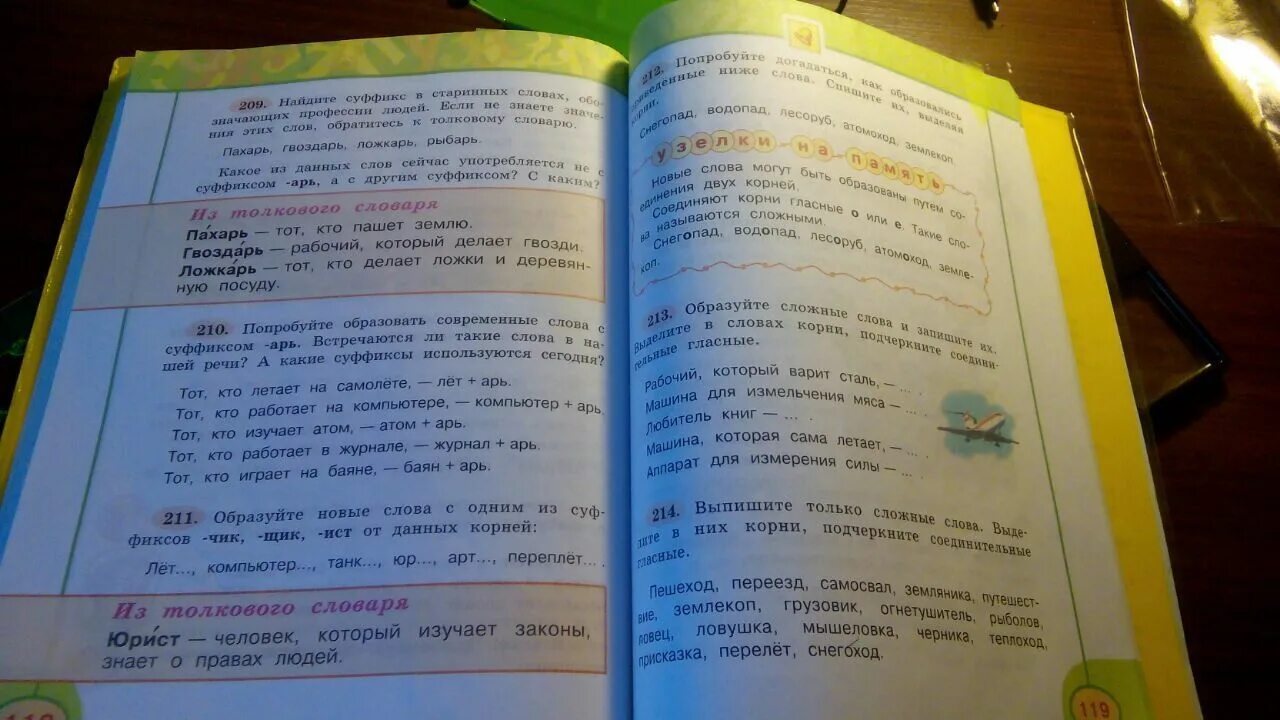 209. Найдите суффикс в старинных словах, обо-
значающих профессии людей. Если не знаете значе-
ния этих слов, обратитесь к толковому словарю.
Пахарь, гвоздарь, ложкарь, рыбарь.
Какое из данных слов сейчас употребляется не с
суффиксом -арь, а с другим суффиксом? С каким?
Из толкового словаря
Па́харь — тот, кто пашет землю.
Гвозда́рь — рабочий, который делает гвозди.
Ложка́рь — тот, кто делает ложки и деревян-
ную посуду.
210. Попробуйте образовать современные слова с
суффиксом -арь. Встречаются ли такие слова в на-
шей речи? А какие суффиксы используются сегодня?
Тот, кто летает на самолёте, — лёт + арь.
Тот, кто работает на компьютере, — компьютер + арь.
Тот, кто изучает атом, — атом + арь.
Тот, кто работает в журнале, — журнал + арь.
Тот, кто играет на баяне, — баян + арь.
211. Образуйте новые слова с одним из суф-
фиксов -чик, -щик, -ист от данных корней:
Лёт..., компьютер..., танк..., юр..., арт..., переплёт... .
Из толкового словаря
Юри́ст — человек, который изучает законы,
знает о правах людей.
118
212. Попробуйте догадаться, как образовались
приведённые ниже слова. Спишите их, выделяя
корни.
Снегопад, водопад, лесоруб, атомоход, землекоп.
узелки на память
Новые слова могут быть образованы путем со-
единения двух корней.
Соединяют корни гласные о или е. Такие сло-
ва называются сложными.
Снегопад, водопад, лесоруб, атомоход, земле-
коп.
213. Образуйте сложные слова и запишите их.
Выделите в словах корни, подчеркните соедини-
тельные гласные.
Рабочий, который варит сталь, — ... .
Машина для измельчения мяса — ... .
Любитель книг — ... .
Машина, которая сама летает, — ... .
Аппарат для измерения силы — ... .
214. Выпишите только сложные слова. Выде-
лите в них корни, подчеркните соединительные
гласные.
Пешеход, переезд, самосвал, земляника, путешест-
вие, землекоп, грузовик, огнетушитель, рыболов,
ловец, ловушка, мышеловка, черника, теплоход,
присказка, перелёт, снегоход.
119